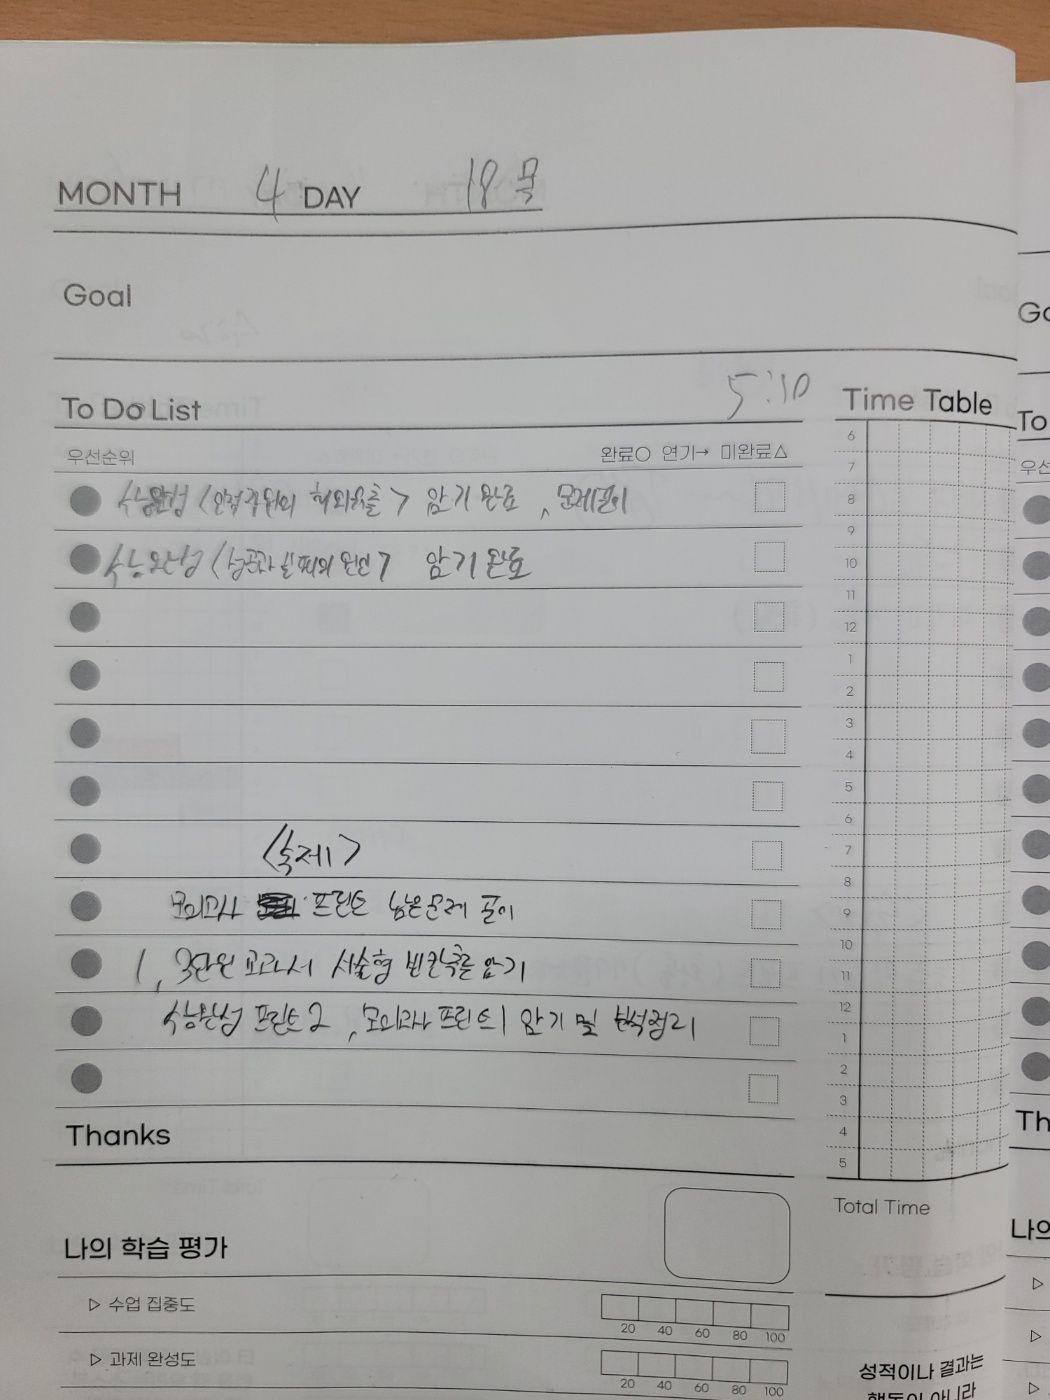 MONTH 4 DAY 18 목
Goal
To Do List 5:10
우선순위 완료○ 연기→ 미완료△
수능완성 < 해외유출> 암기 완료, 문제풀이
수능완성 <성공과 실패의 원인> 암기 완료
<숙제>
모의고사 프린트 남은 문제 풀이
1, 3단원 교과서 서술형 빈칸 암기
수능완성 프린트2, 모의고사 프린트1 암기 및 분석정리
Thanks
나의 학습 평가
▷ 수업 집중도
20 40 60 80 100
▷ 과제 완성도
20 40 60 80 100
Time Table
6
7
8
9
10
11
12
1
2
3
4
5
6
7
8
9
10
11
12
1
2
3
4
5
Total Time
성적이나 결과는
행동이 아니라
Go
To
우선
Th
나의
▷
▷
▷